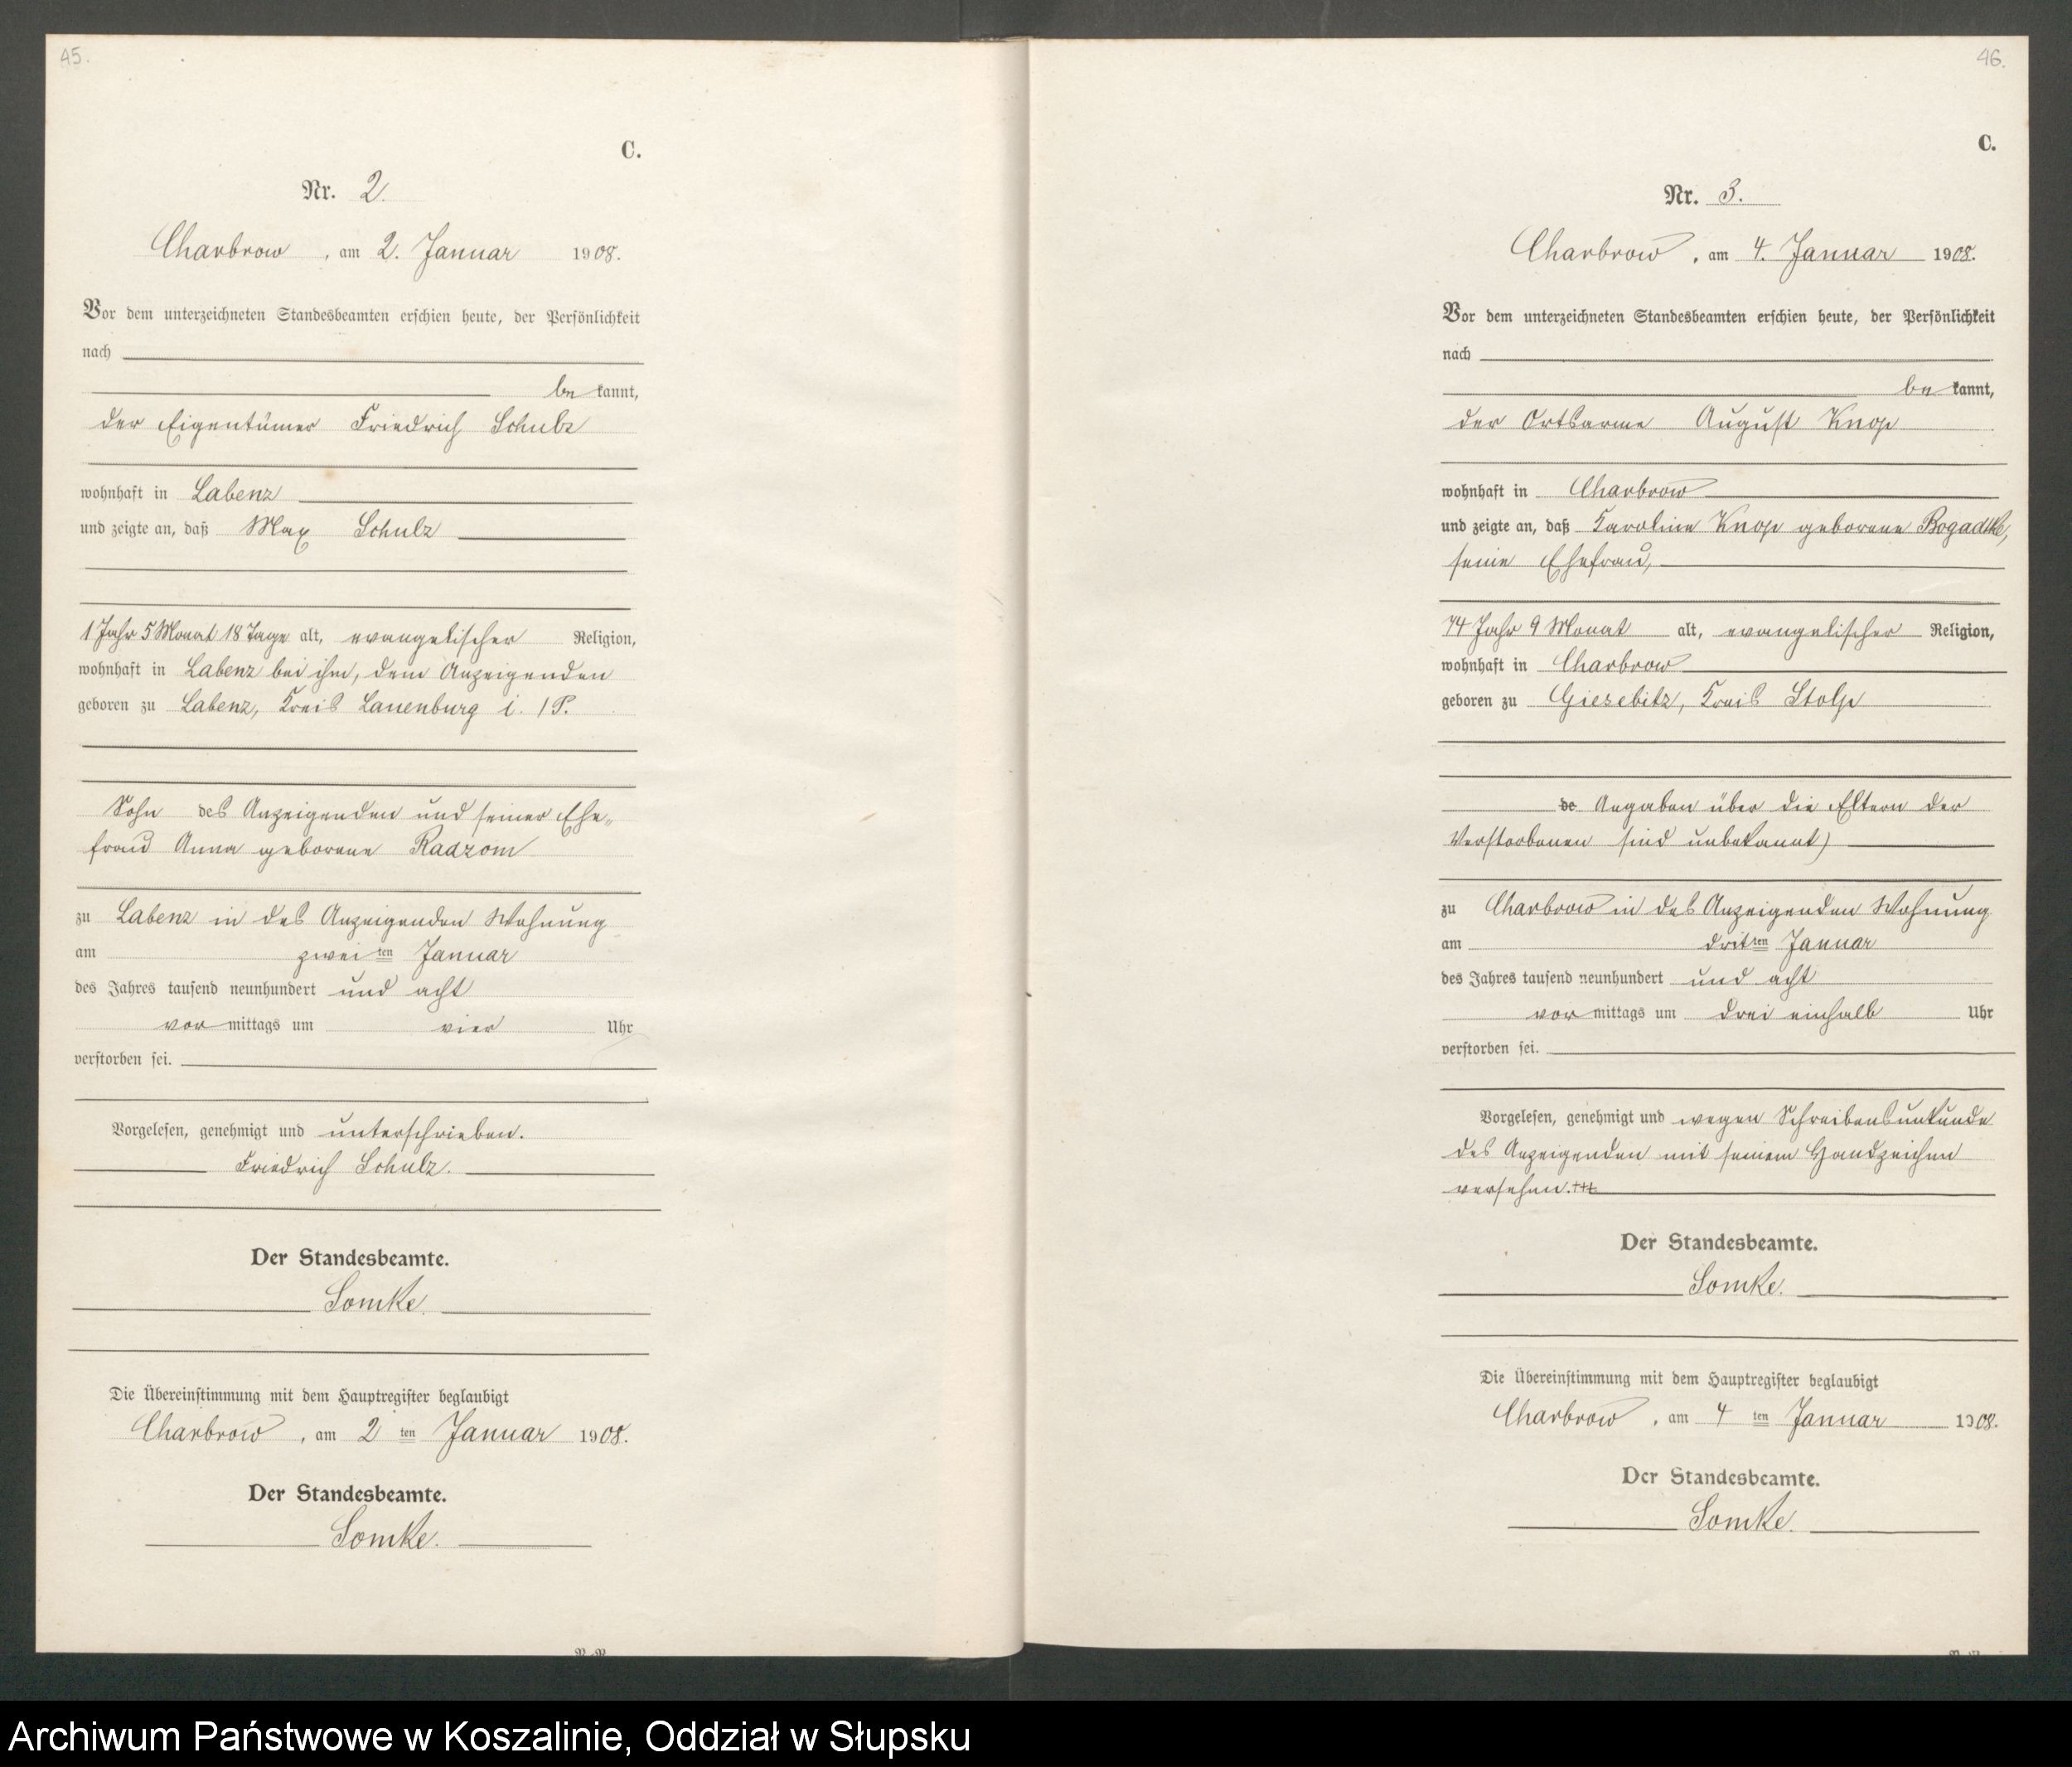 45.
C.
Nr. 2.
Charbrow, am 2. Januar 1908.
Vor dem unterzeichneten Standesbeamten erschien heute, der Persönlichkeit
nach
be kannt,
der Eigentümer Friedrich Schulz
wohnhaft in Labenz
und zeigte an, daß Max Schulz
1 Jahr 5 Monat 18 Tage alt, evangelischer Religion,
wohnhaft in Labenz bei ihm, dem Anzeigenden
geboren zu Labenz, Kreis Lauenburg i. /P.
Sohn des Anzeigenden und seiner Ehe„
frau Anna geborene Radzom
zu Labenz in des Anzeigenden Wohnung
am zwei ten Januar
des Jahres tausend neunhundert und acht
vor mittags um vier Uhr
verstorben sei.
Vorgelesen, genehmigt und unterschrieben.
Friedrich Schulz.
Der Standesbeamte.
Somke.
Die Übereinstimmung mit dem Hauptregister beglaubigt
Charbrow, am 2 ten Januar 1908.
Der Standesbeamte.
Somke.
46.
C.
Nr. 3.
Charbrow, am 4. Januar 1908.
Vor dem unterzeichneten Standesbeamten erschien heute, der Persönlichkeit
nach
be kannt,
der Ortsarme August Knop
wohnhaft in Charbrow
und zeigte an, daß Karoline Knop geborene Bogadtke,
seine Ehefrau,
74 Jahr 9 Monat alt, evangelischer Religion,
wohnhaft in Charbrow
geboren zu Giesebitz, Kreis Stolp
de Angaben über die Eltern der
Verstorbenen sind unbekannt)
zu Charbrow in des Anzeigenden Wohnung
am drit ten Januar
des Jahres tausend neunhundert und acht
vor mittags um drei einhalb Uhr
verstorben sei.
Vorgelesen, genehmigt und wegen Schreibensunkunde
des Anzeigenden mit seinem Handzeichen
versehen. +++
Der Standesbeamte.
Somke.
Die Übereinstimmung mit dem Hauptregister beglaubigt
Charbrow, am 4 ten Januar 1908.
Der Standesbeamte.
Somke.
Archiwum Państwowe w Koszalinie, Oddział w Słupsku